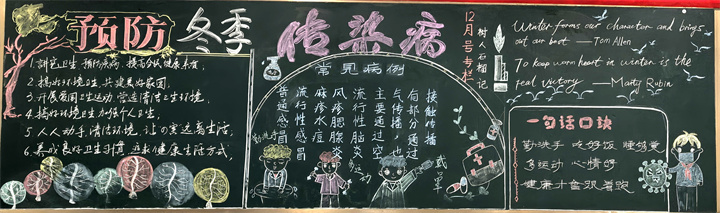 预防冬季传染病
1.讲卫生 预防疾病,提高公众健康素质
2.搞好环境卫生,共建美好家园,
3.开展爱国卫生运动,营造清洁卫生环境,
4.搞好环境卫生,加强个人卫生,
5.人人动手,清洁环境,让口罩远离生活,
6.养成良好卫生习惯,追求健康生活方式,
常见病例
普通感冒
流行性感冒
麻疹水痘
风疹腮腺炎
流行性脑炎
主要通过空
气传播,也
有部分通过
接触传播
勤洗手
运动
戴罩
12月号专栏
树人石榴记
Winter forms our character and brings
out our best — Tom Allen
To keep warm heart in winter is the
real victory — Marty Rubin
一句话口诀
勤洗手 吃好饭 睡够觉
多运动 心情好
健康才会跟着跑